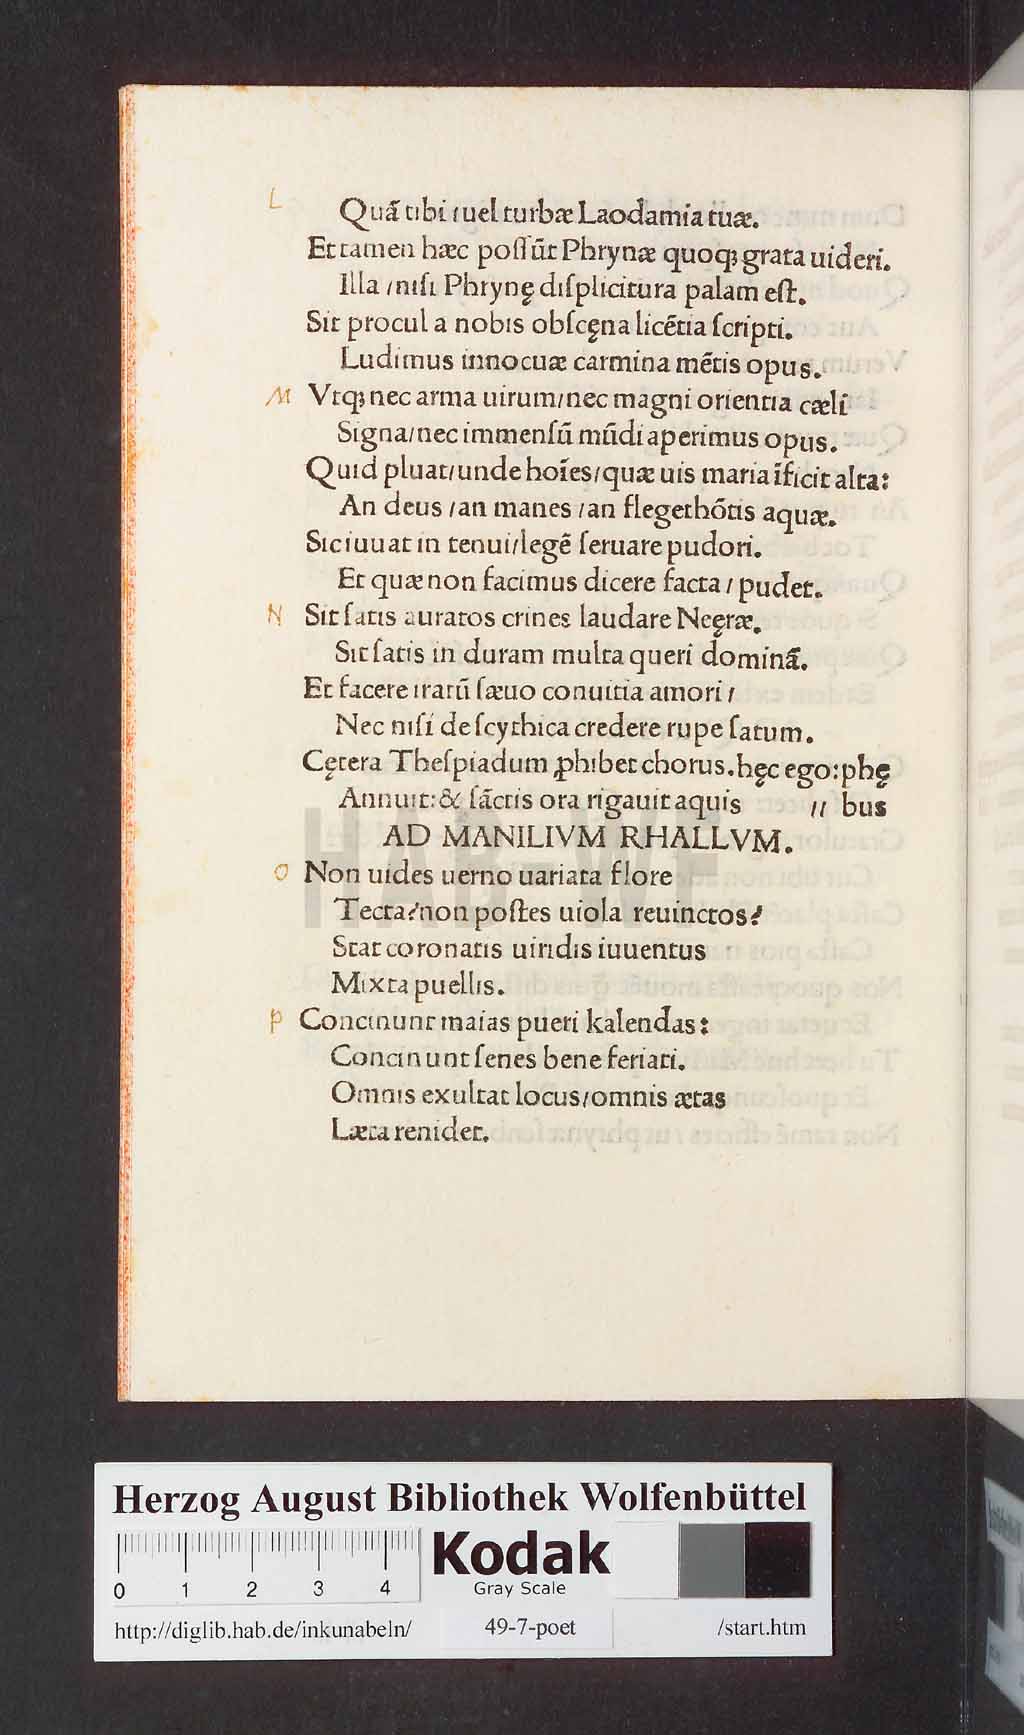 L
Quã tibi/uel turbæ Laodamia tuæ.
Et tamen hæc poſſũt Phrynæ quoqꝫ grata uideri.
Illa/niſi Phrynę diſplicitura palam eſt.
Sit procul a nobis obſcęna licẽtia ſcripti.
Ludimus innocuæ carmina mẽtis opus.
M Vtqꝫ nec arma uirum/nec magni orientia cæli
Signa/nec immenſũ mũdi aperimus opus.
Quid pluat/unde hoĩes/quæ uis maria ĩficit alta:
An deus/an manes/an flegethõtis aquæ.
Sic iuuat in tenui/legẽ ſeruare pudori.
Et quæ non facimus dicere facta/pudet.
N Sit ſatis auratos crines laudare Neęræ.
Sit ſatis in duram multa queri dominã.
Et facere iratũ ſæuo conuitia amori/
Nec niſi de ſcythica credere rupe ſatum.
Cętera Theſpiadum ꝓhibet chorus.hęc ego:phę
Annuit:& ſãctis ora rigauit aquis // bus
AD MANILIVM RHALLVM.
O Non uides uerno uariata flore
Tecta?non poſtes uiola reuinctos?
Stat coronatis uiridis iuuentus
Mixta puellis.
P Concinunt maias pueri kalendas:
Concinunt ſenes bene feriati.
Omnis exultat locus/omnis ætas
Læta renidet.
HAB-WF
Herzog August Bibliothek Wolfenbüttel
0 1 2 3 4
Kodak
Gray Scale
http://diglib.hab.de/inkunabeln/ 49-7-poet /start.htm